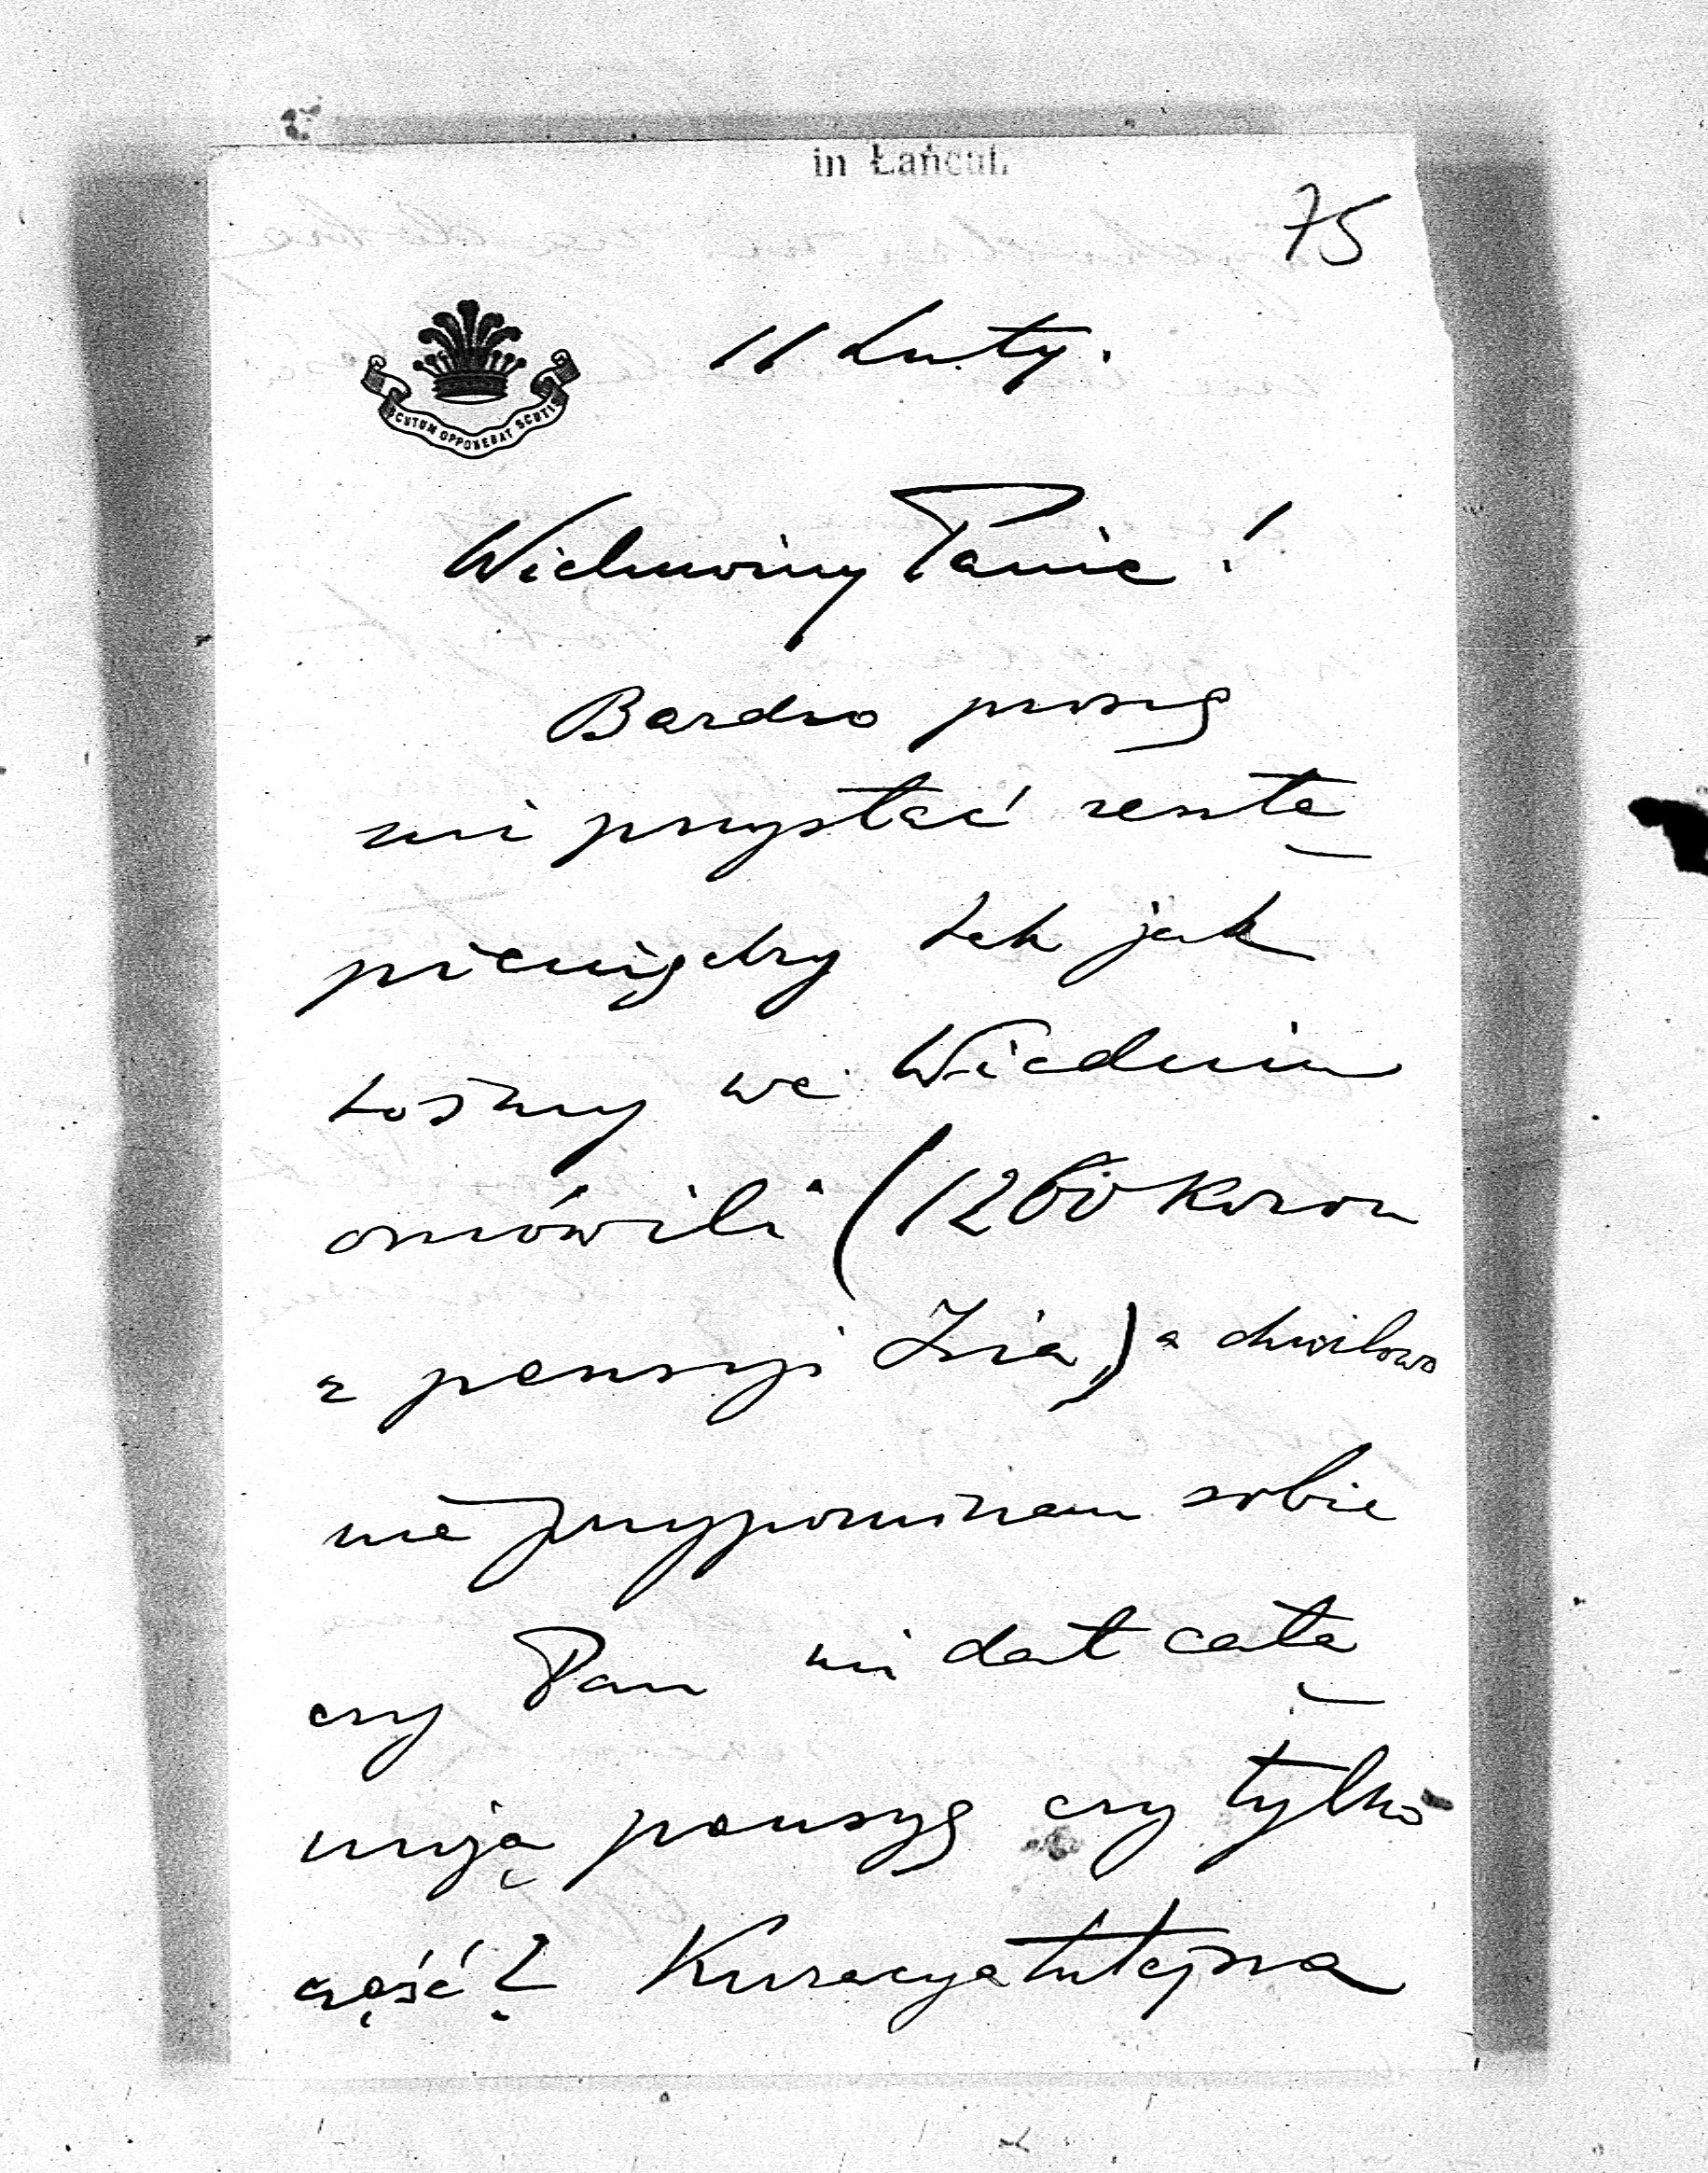 in Łańcut.
75
11 Luty.
SCUTUM OPPONEBAT SCUTIS
Wielmożny Panie!
Bardzo proszę
mi przysłać resztę
pieniędzy tak jak
tośmy we Wiedniu
omówili (1260 Koron
z pensyi Zia) a chwilowo
nie przypominam sobie
czy Pan mi dał całą
moją pensyę czy tylko
część? Kuracya tutejsza